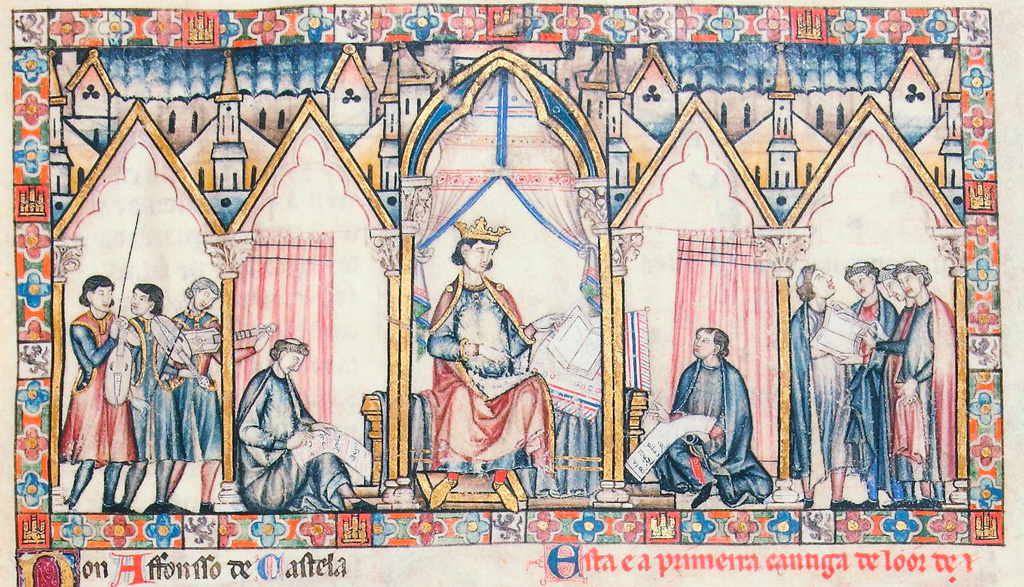 Don Affonsso de Castela
Esta e a primeira cantiga de loor de